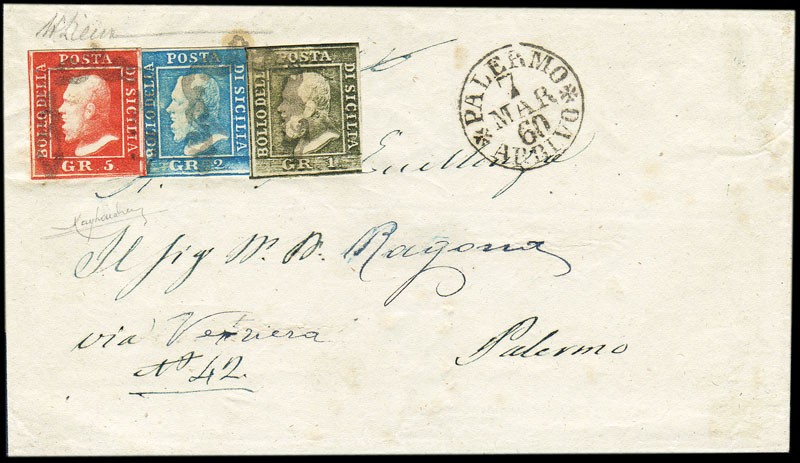 POSTA
BOLLO DELLA
DI SICILIA
GR. 5
POSTA
BOLLO DELLA
DI SICILIA
GR. 2
POSTA
BOLLO DELLA
DI SICILIA
GR. 1
PALERMO
7
MAR
60
ARRIVO
Il Sig
Ragona
via Vetriera
Palermo
N° 42.